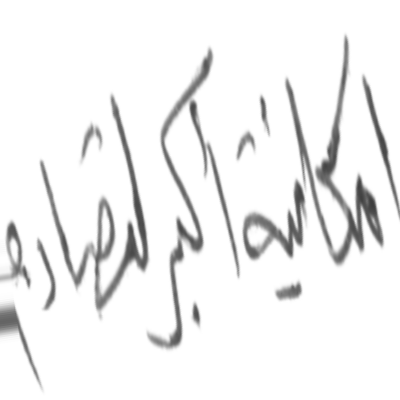 امكانية اكبر لتصادم